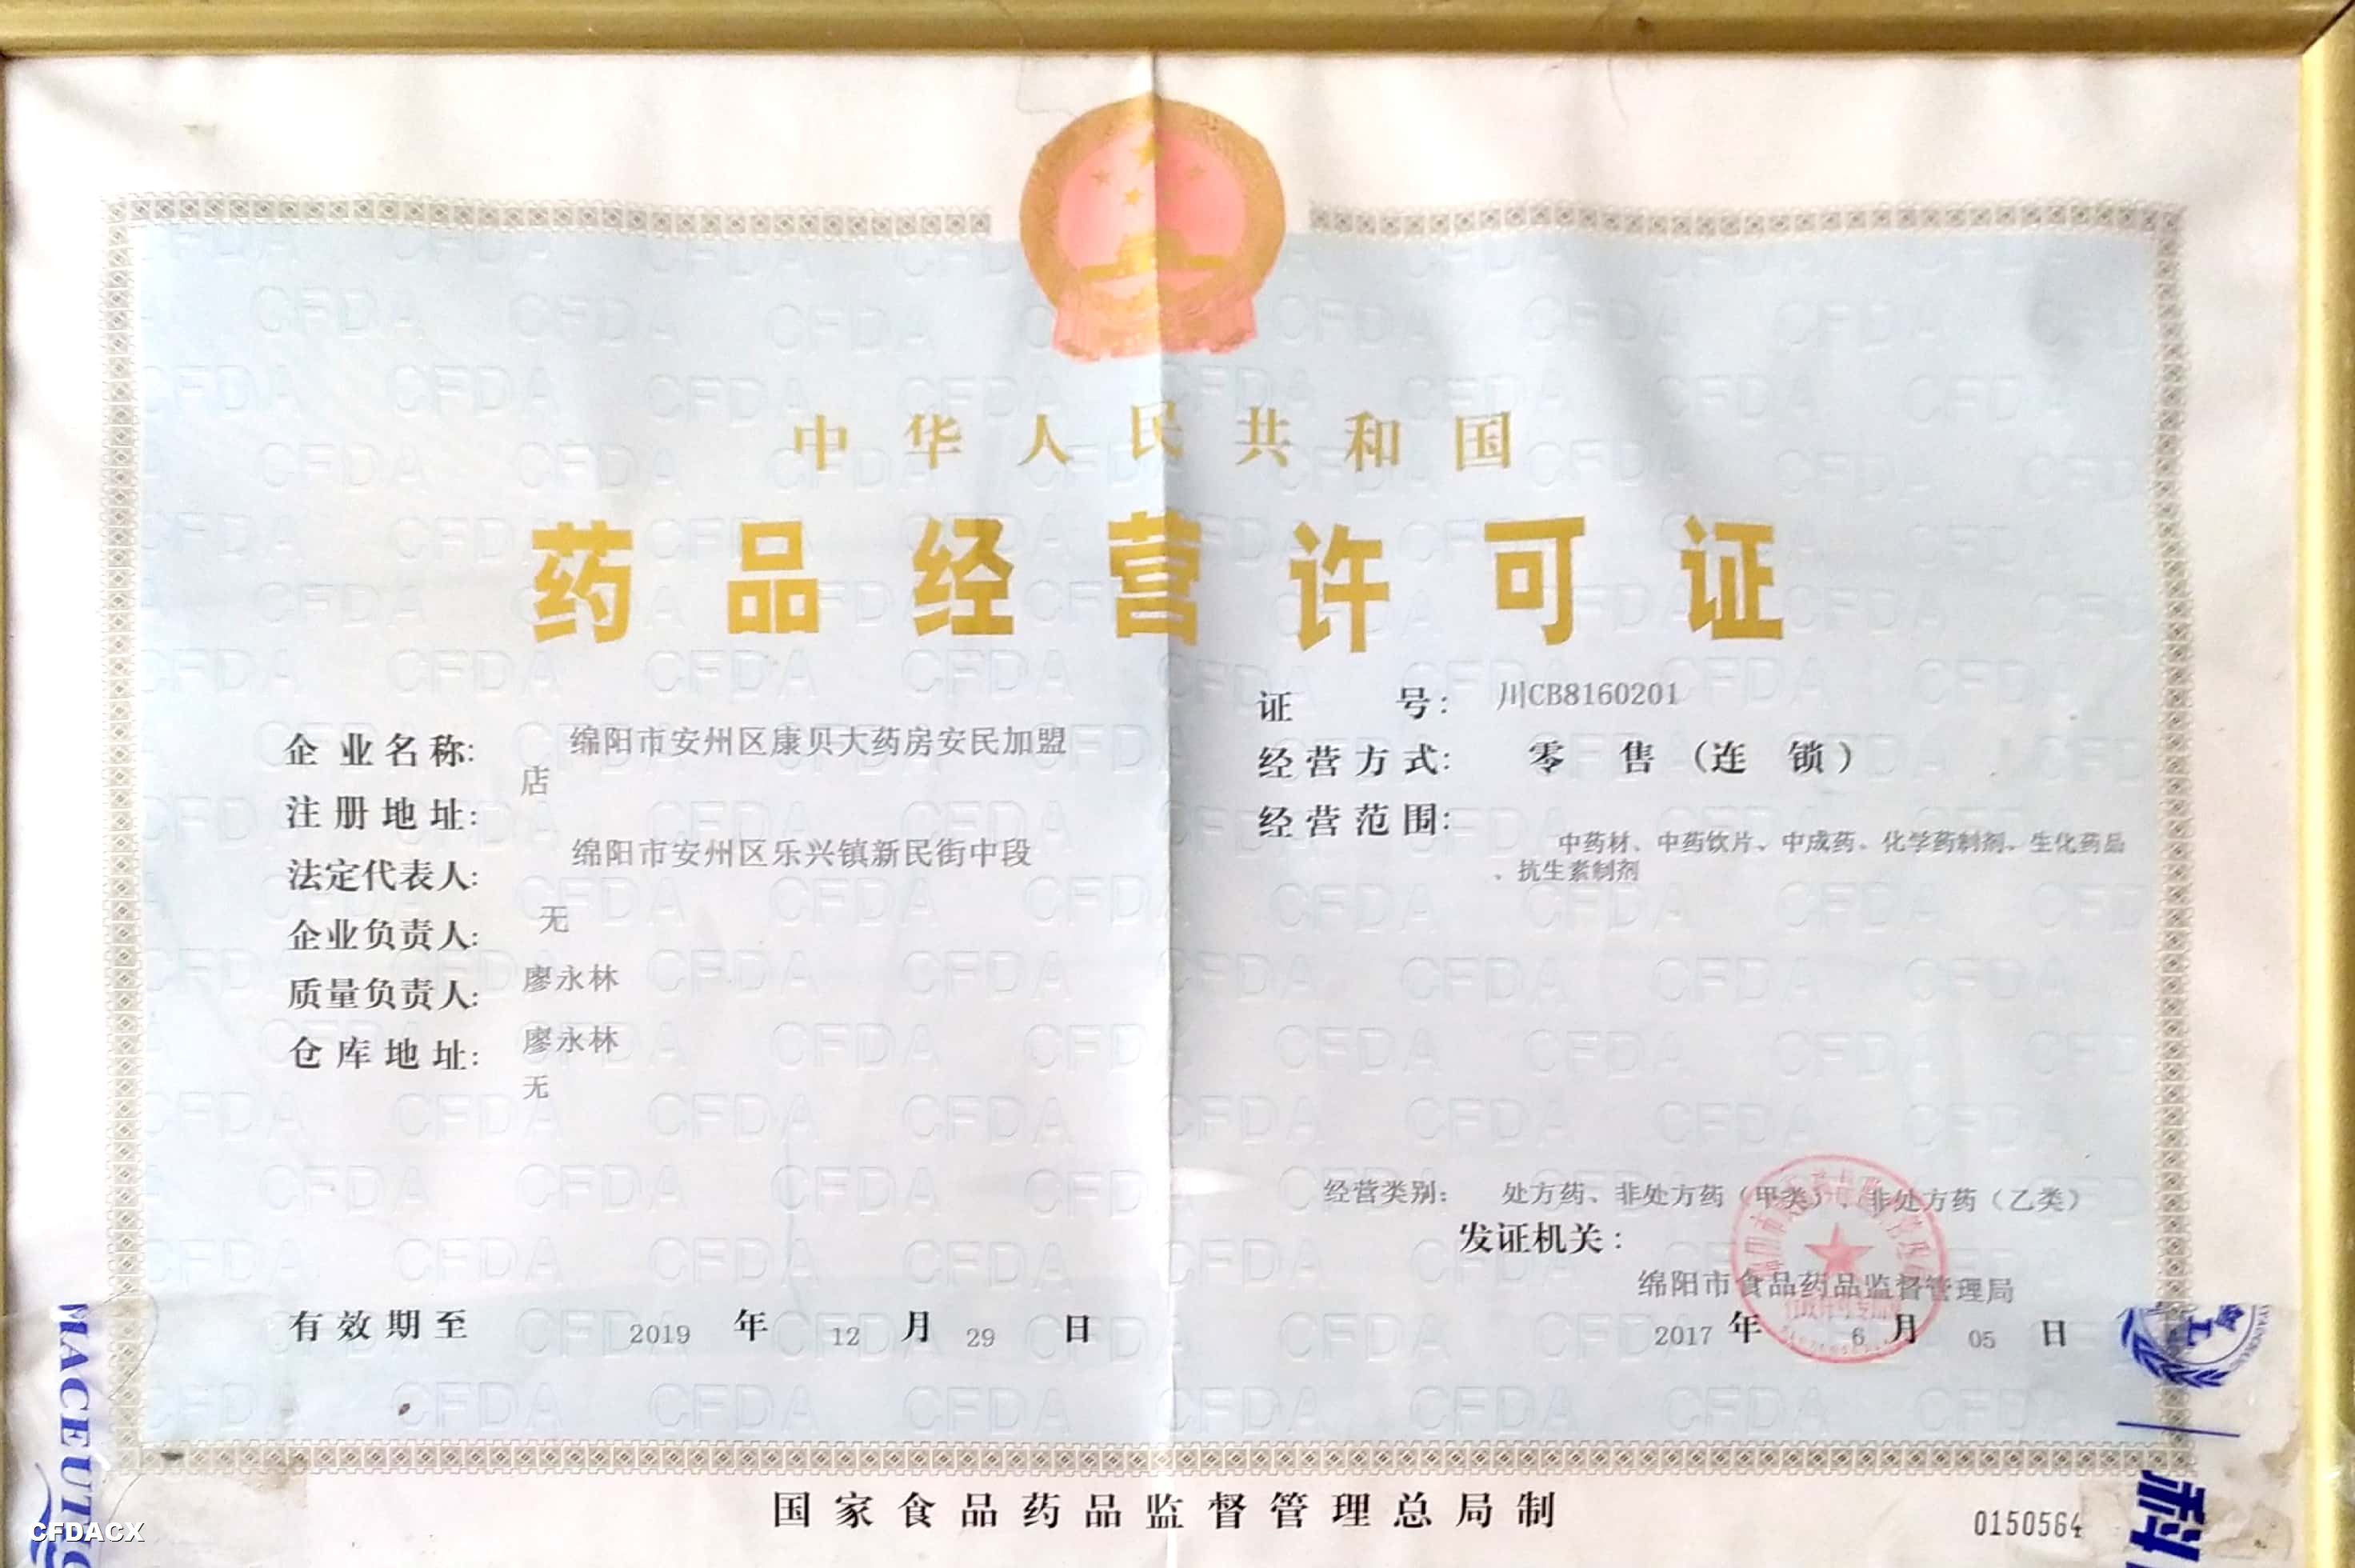 中华人民共和国
药品经营许可证
证 号： 川CB8160201
企业名称: 绵阳市安州区康贝大药房安民加盟
店
经营方式: 零 售（连 锁）
注册地址:
绵阳市安州区乐兴镇新民街中段
经营范围:
中药材、中药饮片、中成药、化学药制剂、生化药品
、抗生素制剂
法定代表人:
无
企业负责人:
廖永林
质量负责人:
廖永林
仓库地址:
无
经营类别: 处方药、非处方药（甲类）、非处方药（乙类）
发证机关：
绵阳市食品药品监督管理局
有效期至 2019 年 12 月 29 日
2017 年 6 月 05 日
国家食品药品监督管理总局制
0150564
MACEUT
科
CFDACX